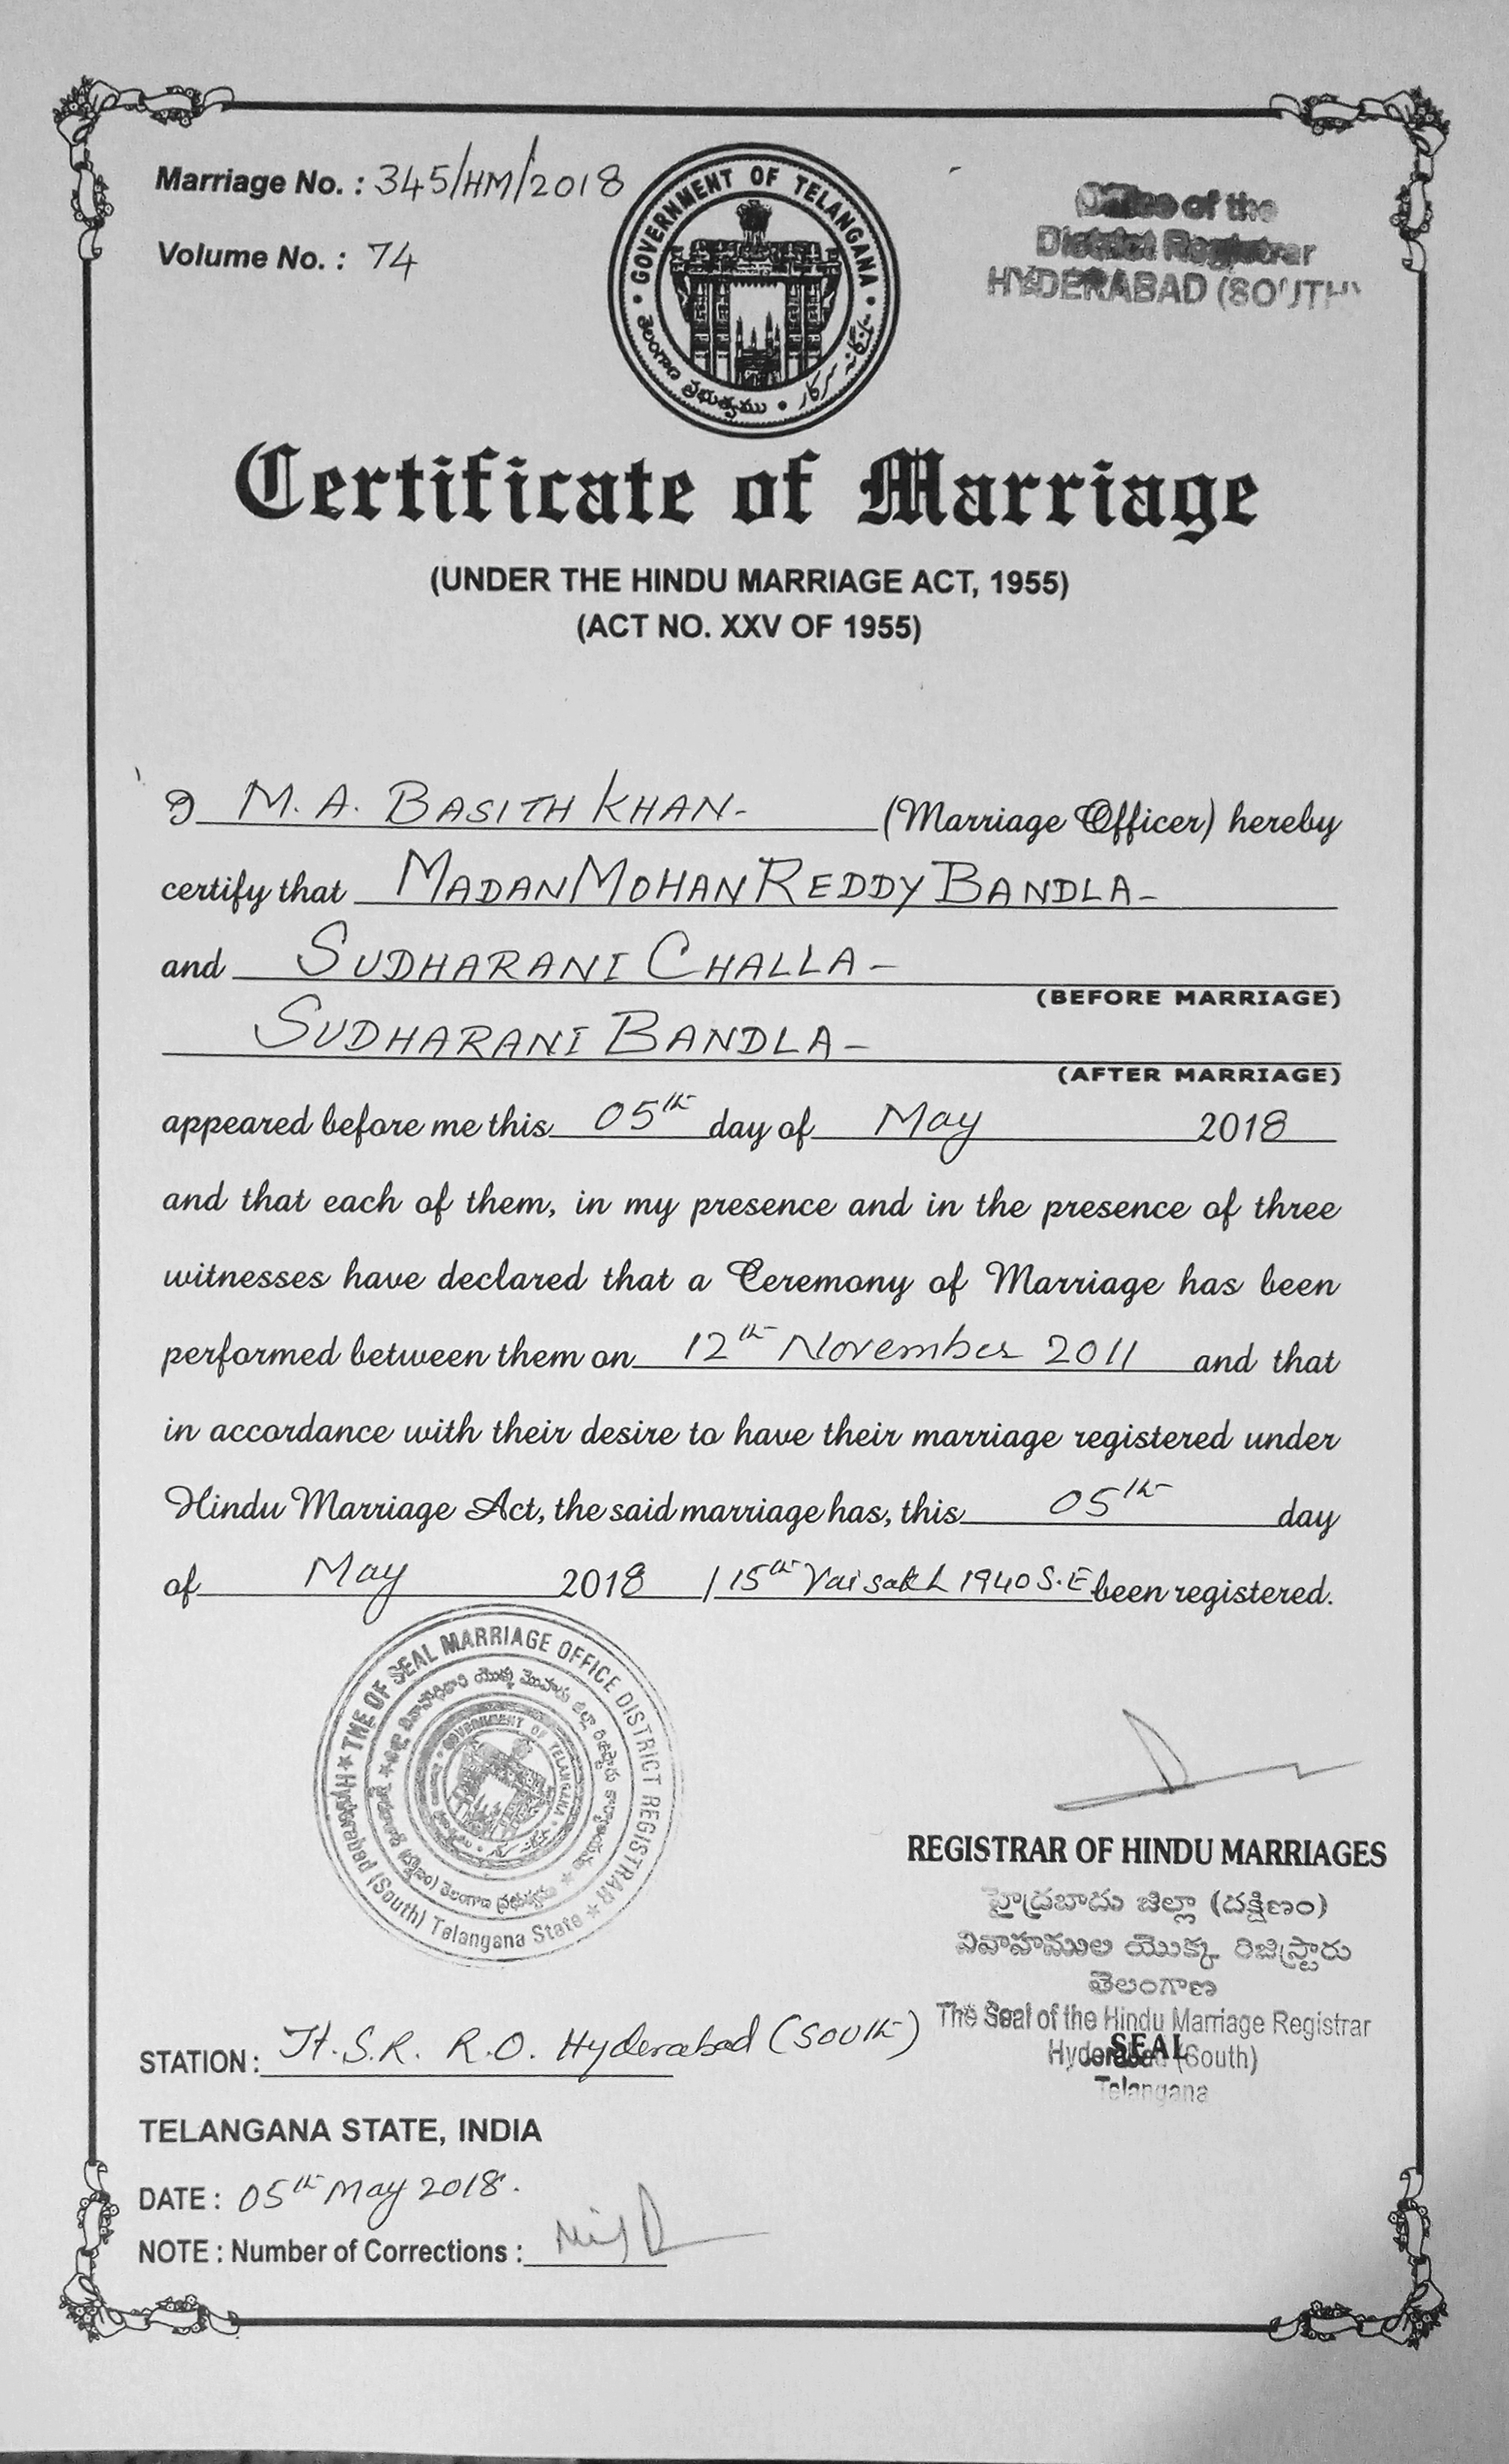 Marriage No. : 345/HM/2018
Volume No. : 74
GOVERNMENT OF TELANGANA
తెలంగాణ ప్రభుత్వము
تلنگانہ سرکار
Office of the
District Registrar
HYDERABAD (SOUTH)
Certificate of Marriage
(UNDER THE HINDU MARRIAGE ACT, 1955)
(ACT NO. XXV OF 1955)
I M. A. BASITH KHAN- (Marriage Officer) hereby
certify that MADAN MOHAN REDDY BANDLA-
and SUDHARANI CHALLA-
(BEFORE MARRIAGE)
SUDHARANI BANDLA-
(AFTER MARRIAGE)
appeared before me this 05th day of May 2018
and that each of them, in my presence and in the presence of three
witnesses have declared that a Ceremony of Marriage has been
performed between them on 12th November 2011 and that
in accordance with their desire to have their marriage registered under
Hindu Marriage Act, the said marriage has, this 05th day
of May 2018 / 15th Vaisakh 1940 S.E been registered.
THE OF SEAL MARRIAGE OFFICE DISTRICT REGISTRAR
Hyderabad (South) Telangana State
GOVERNMENT OF TELANGANA
REGISTRAR OF HINDU MARRIAGES
హైద్రబాదు జిల్లా (దక్షిణం)
వివాహముల యొక్క రిజిస్ట్రారు
తెలంగాణ
The Seal of the Hindu Marriage Registrar
Hyderabad (South)
SEAL
Telangana
STATION : Jt. S.R. R.O. Hyderabad (South)
TELANGANA STATE, INDIA
DATE : 05th May 2018.
NOTE : Number of Corrections : Nil